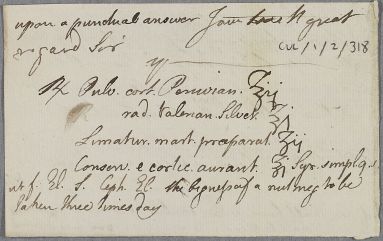 upon a punctual answer I am wth great
regard Sir
CUL/1/2/318
y
℞ Pulv. cort. Peruvian. ℥ij
rad. Valerian. Silves. ℥j
Limatur. mart. præparat. ℥ij
Conserv. e cortic. aurant. ℥j Syr. simpl. q.s
ut f. El. S. Cap. El. the bigness of a nutmeg to be
taken three times day